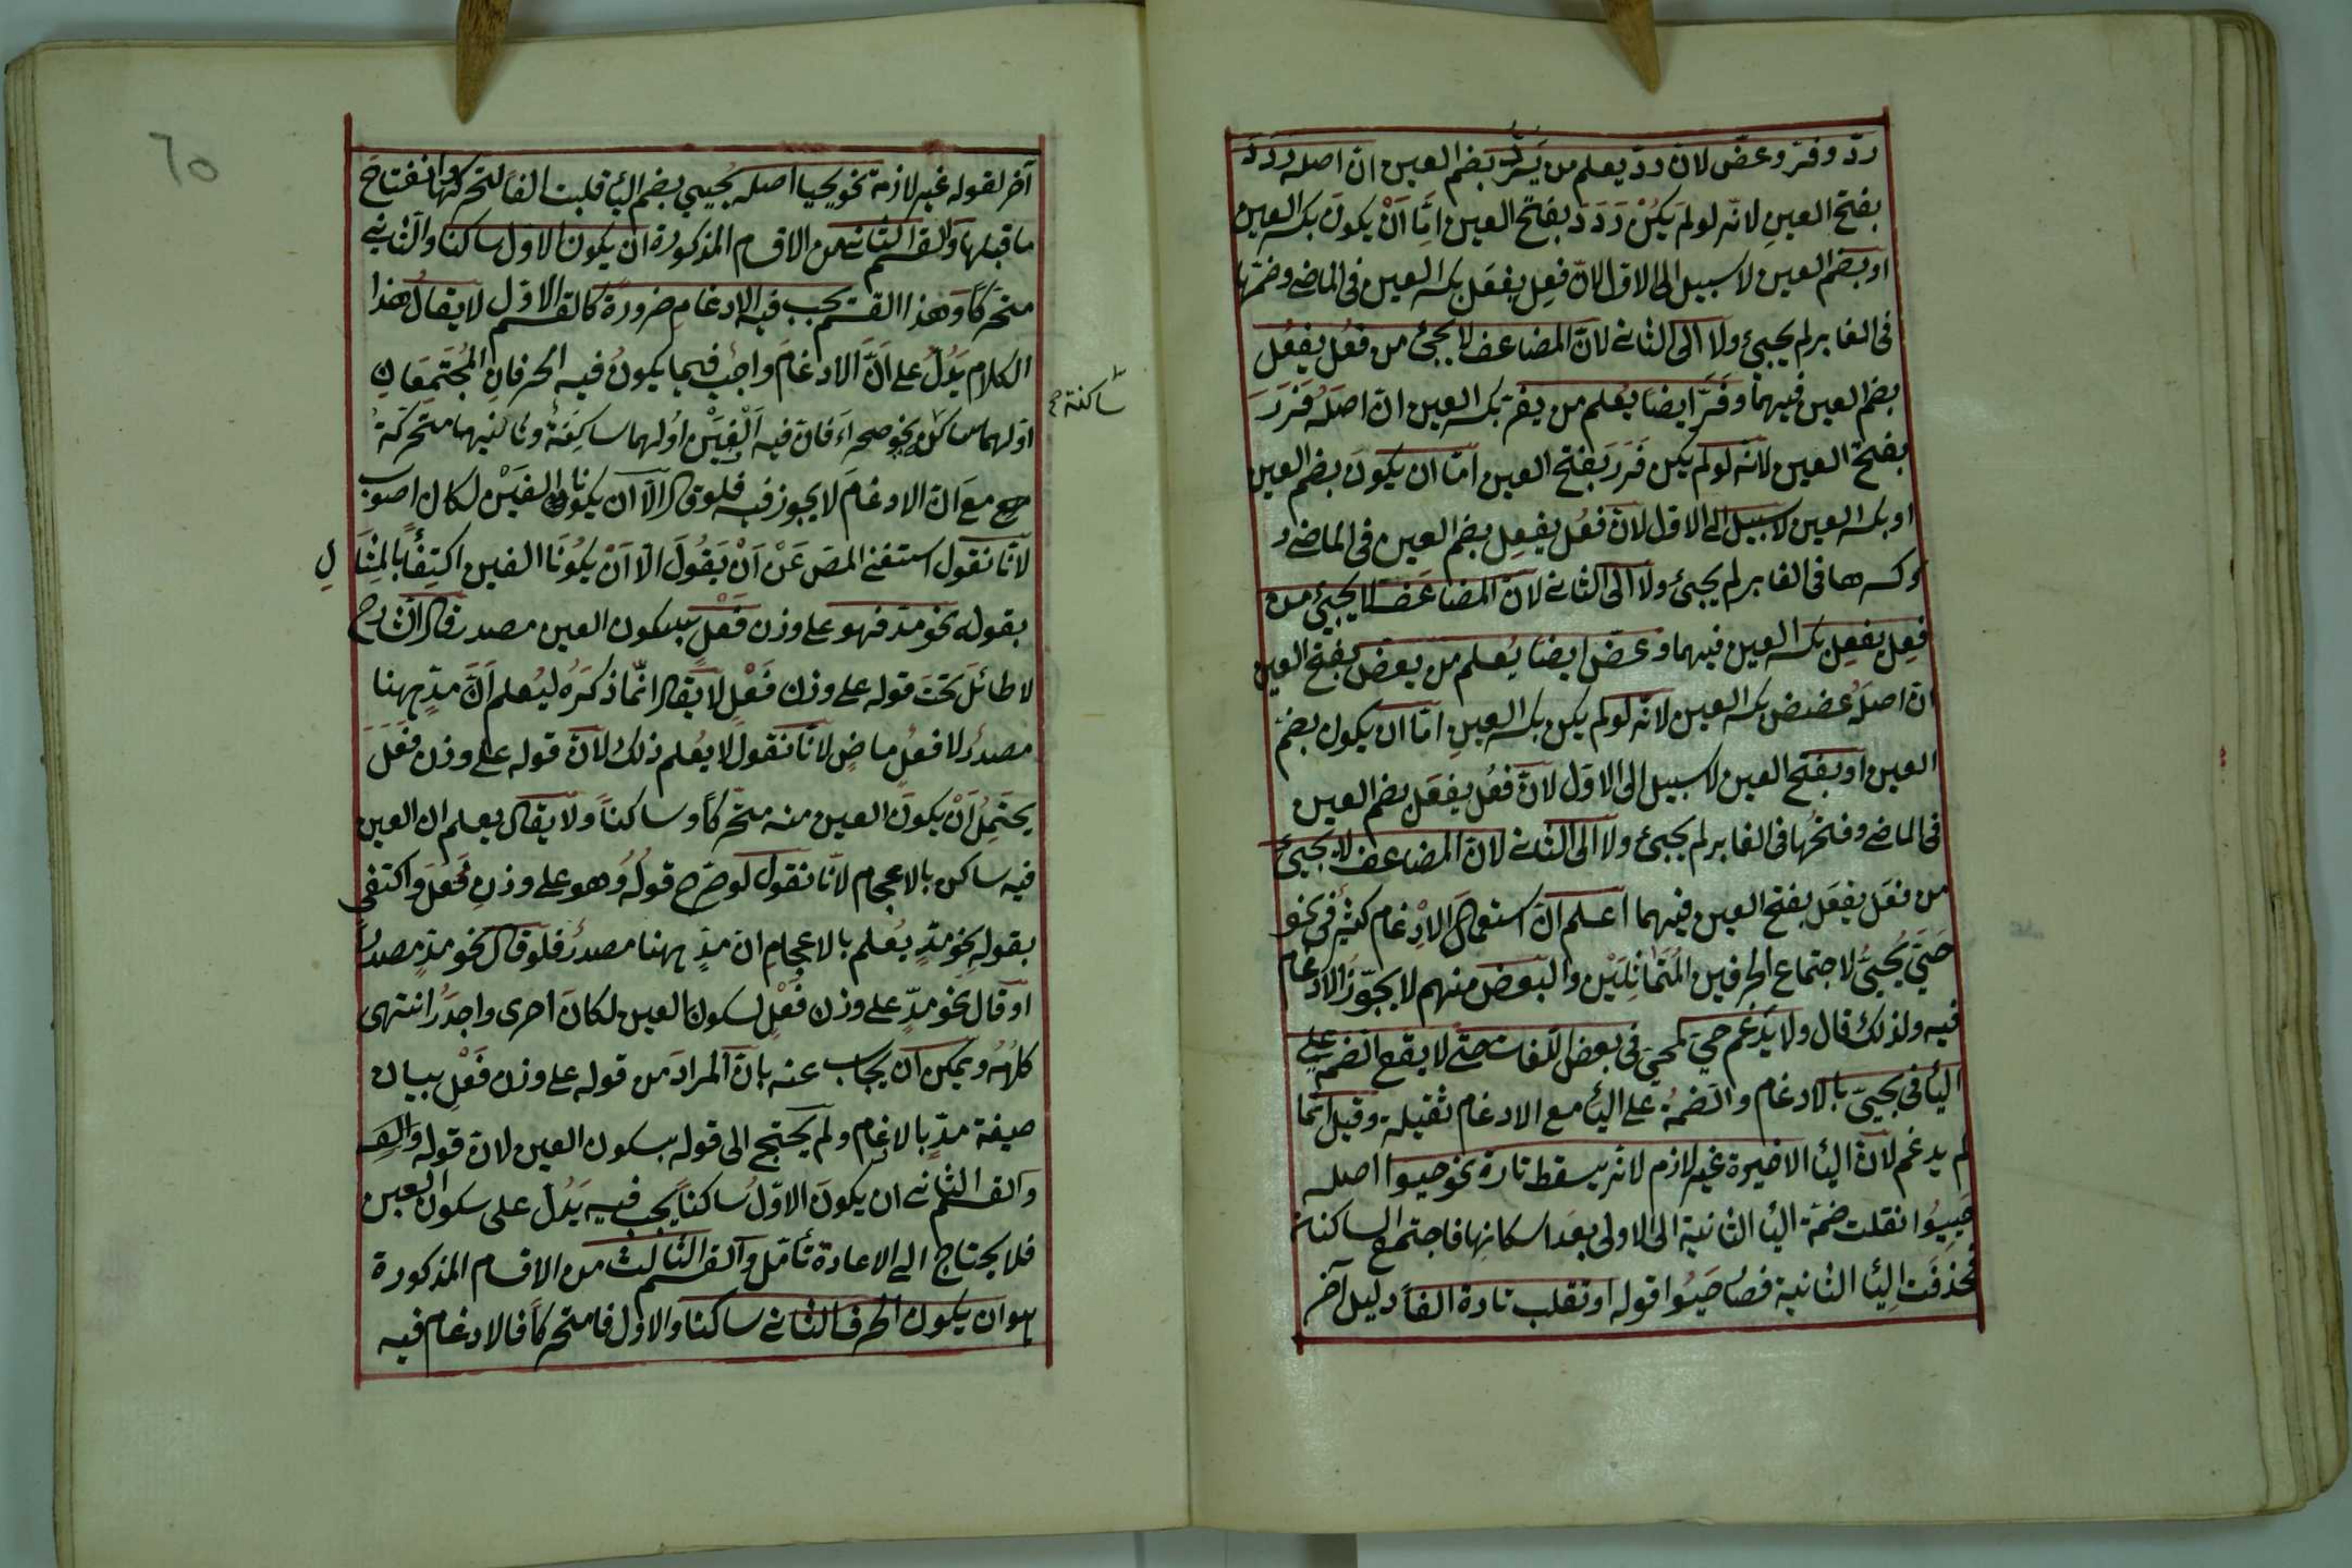 ردّ وفرّ وعضّ لانّ ردّ يعلم من يَرُدّ بضم العين انّ اصله رَدَدَ
بفتح العينِ لانّه لو لم يكُنْ رَدَدَ بفتح العين امَّا اَنْ يكونَ بكسر العين
او بضم العين لا سبيل الى الاوّل لانّ فَعِل يفعَل بكسر العين فى الماضى وضمّها
فى الغابر لم يجيئ ولا الى الثانى لانّ المضاعف لا يجئ من فعُل يفعُل
بضم العين فيهما وفَرَّ ايضا يُعلم من يفرّ بكسر العين انّ اصلَهُ فَرَرَ
بفتح العين لانّه لو لم يكن فَرَرَ بفتح العين امّا ان يكونَ بضم العين
او بكسر العين لا سبيل الى الاوّل لانّ فعُل يفعِل بضم العين فى الماضى و
وكسرها فى الغابر لم يجئ ولا الى الثانى لانّ المضاعَف لا يجيئ من
فعِل يفعِل بكسر العين فيهما وعضّ ايضا يُعلم من يعضّ بفتح العين
انّ اصلَهُ عضض بكسر العين لانّه لو لم يكن بكسر العينِ امّا ان يكون بضمّ
العين او بفتح العين لا سبيل الى الاوّل لانّ فعُل يفعَل بضم العين
فى الماضى وفتحُها فى الغابر لم يجيئ ولا الى الثانى لانّ المضاعف لا يجيئ
من فعَل يفعَل بفتح العين فيهما اعلم انّ استعمال الاِدْغام كثيرٌ فى نحو
حَيِىَ يُحْيِىُ لاجتماع الحرفين المُتَمَاثِلَيْن والبعض منهم لا يجوّزُ الادغام
فيه ولذلك قال ولا يدغم حيى يحيى فى بعض اللغات حتّى لا يقع الضمّ على
اليأ فى يحيىّ بالادغام والضمّة على اليأ مع الادغام ثقيلة وقيل انّما
لم يدغم لانّ اليأ الاخيرة غير لازم لانّه يسقط تارة نحو حيوا اصله
حَيِيُوا نقلت ضمّة اليأ الثانية الى الاولى بعد اسكانها فاجتمع الساكنان
فحذفت اليأ الثانية فصار حَيُوا قوله او تقلب تارة الفاً دليل آخر
آخر لقوله غير لازمة نحو يحيا اصله يُحيِيُ بضم اليأ قلبت الفاً لتحركها وانفتاح
ما قبلها والقسم الثانى من الاقسام المذكورة ان يكون الاول ساكنا والثانى
متحرّكاً وهذا القسم يجب فيه الادغام ضرورة كالقسم الاوّل لا يقال هذا
الكلام يَدُلّ على اَنّ الادغامَ واجب فيما يكونُ فيه الحرفانِ المُجتَمِعَانِ
اوّلهما ساكن نحو صحرآءَ فانّ فيه اَلْفَيْن اولهما ساكنةٌ وثانيهما متحرّكةُ
ساكنة صح
صح مع انّ الادغامَ لا يجوز فيه فلو قال الّا ان يكونا الفَيْن لكان اصوب
لانّا نقول استغنى المصَ عَنْ اَنْ يَقُولَ الّا اَنْ يكُونَا الفين اكتِفاً بالمِثَالِ
بقوله نحو مدّ فهو على وزن فَعْلٍ بسكون العين مصدر قال الشارح
لا طائلَ تحتَ قوله على وزن فَعْلٍ لا يقال انّما ذكرَهُ ليُعلم اَنَّ مدّ ههنا
مصدرُ لا فعل ماضٍ لانّا نقول لا يُعلم ذلك لانّ قوله على وزن فَعَلَ
يحتمِلُ اَنْ يكونَ العين منه متحرّكاً وساكناً ولا يقال يعلم ان العين
فيه ساكن بالاعجام لانّا نقول لو طرح قولُه وهو على وزنِ فَعْلٍ واكتفى
بقوله نحو مدّ يُعلم بالاعجامِ ان مدّ ههنا مصدرُ فلو قال نحو مدّ مصدراً
او قال نحو مدٍّ على وزن فَعْلٍ لسكون العين لكانَ احرى واجدَرُ انتهى
كلامُهُ ويمكن ان يجاب عنه بانّ المرادَ من قوله على وزن فَعْلٍ بيان
صيغة مدّ بالادغام ولم يحتج الى قوله بسكون العين لانّ قوله
والقسم الثانى ان يكونَ الاوّلُ ساكناً يجب فيه يَدُلّ على سكون العين
فلا يحتاج الى الاعادة تأمّل والقسم الثالث من الاقسام المذكورة
هو ان يكون الحرف الثانى ساكنا والاوّل متحرّكاً فالادغام فيه
٦٥